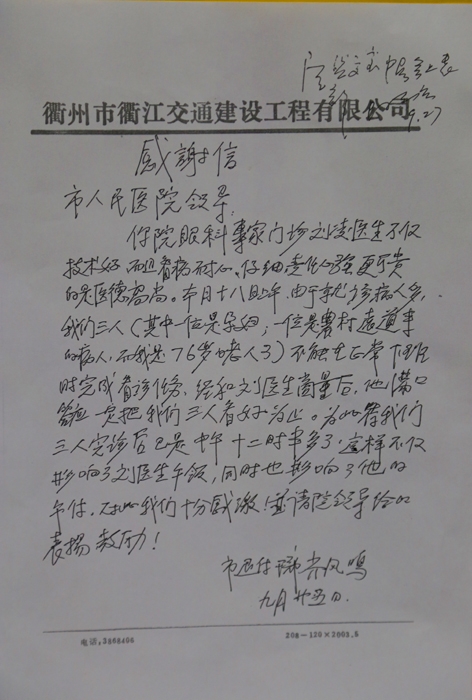 衢州市衢江交通建设工程有限公司
9.27
感謝信
市人民医院领导:
你院眼科專家门诊刘凌医生不仅
技术好,而且看病耐心、仔细责任心強,更可贵
的是医德高尚。本月十八日上午,由于就诊病人多,
我们三人(其中一位是孕妇,一位是農村遠道事
的病人,而我是76岁的老人了)不能在正常下班
时完成看诊任务,经和刘医生商量后,他满口
答应一定把我们三人看好为止。为此等我们
三人完诊后已是中午十二时半多了,这样不仅
影响了刘医生午饭,同时也影响了他的
午休,对此我们十分感激!並请院领导给以
表揚鼓励!
九月廿五日.
电话,3868496
208-120×2003.5